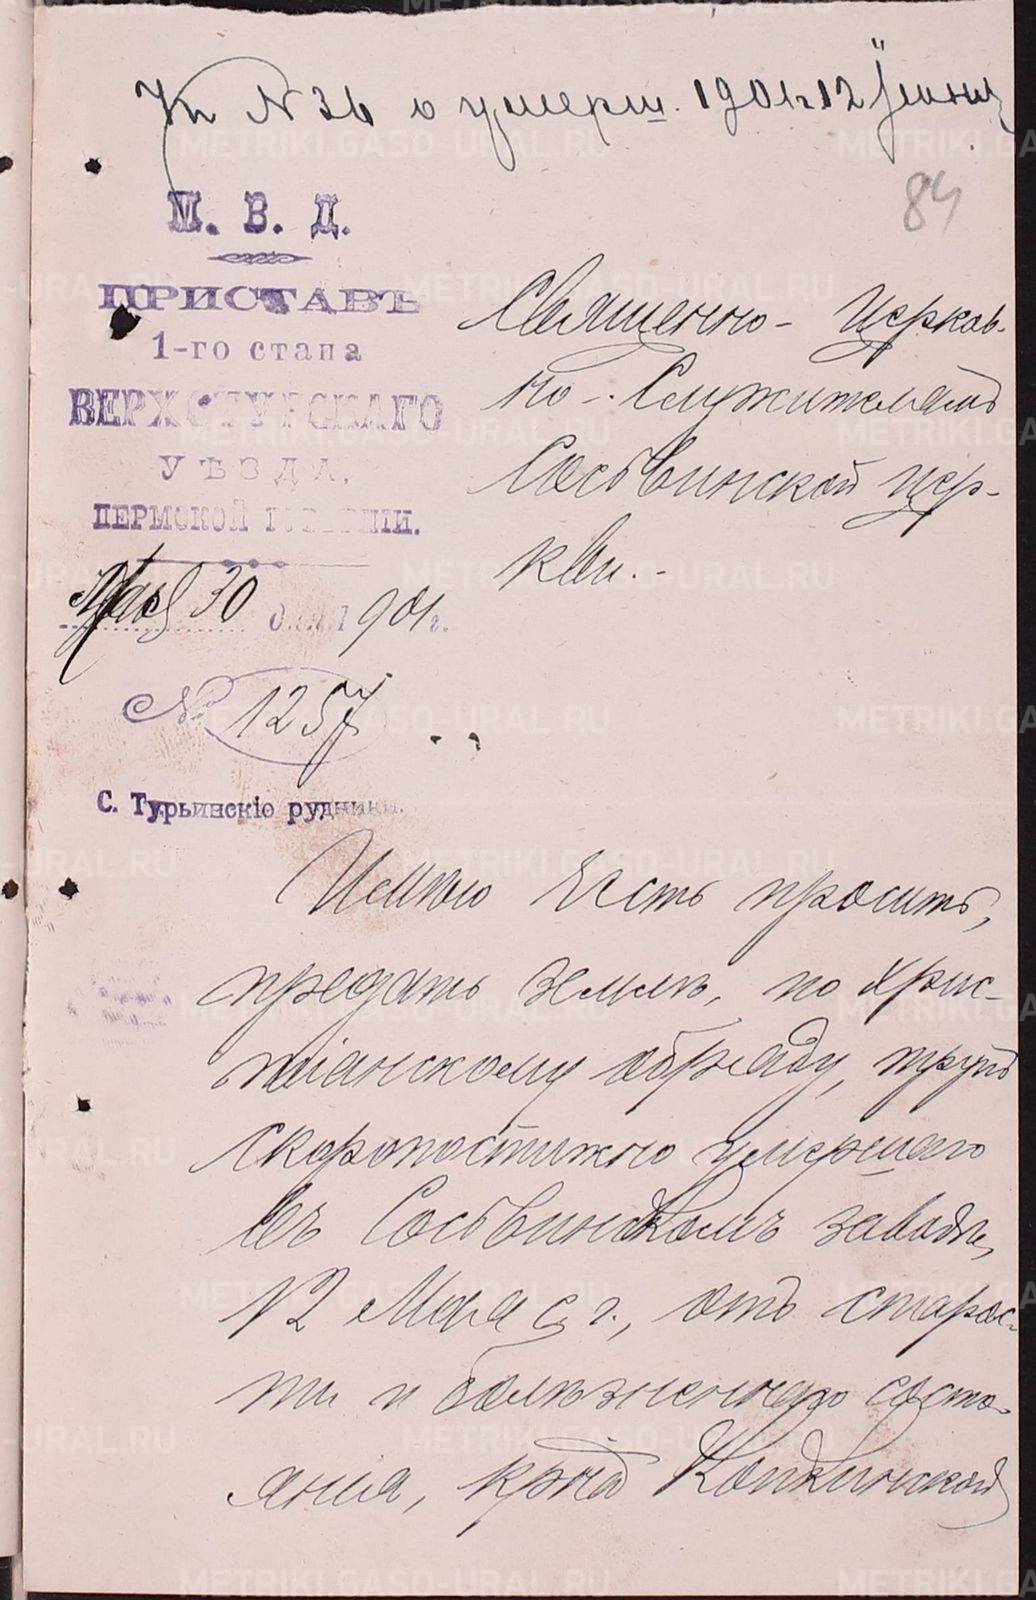 Къ N 36 о умерш. 1901 г 12 Iюня
84
М. В. Д.
ПРИСТАВЪ
1-го стана
ВЕРХОТУРСКАГО
УѢЗДА,
ПЕРМСКОЙ ГУБЕРНІИ.
Мая 30 дня 1901 г.
№ 1257
С. Турьинскіе рудники.
Священно-Церков-
но-Служителямъ
Сосьвинской цер-
кви.-
Имѣю честь просить,
предать землѣ, по хрис-
тіанскому обряду, трупъ
скоропостижно умершаго
въ Сосьвинскомъ заводѣ,
12 Мая с. г., отъ старос-
ти и болѣзненнаго состо-
янія, кр-на Копкинской
METRIKI.GASO-URAL.RU